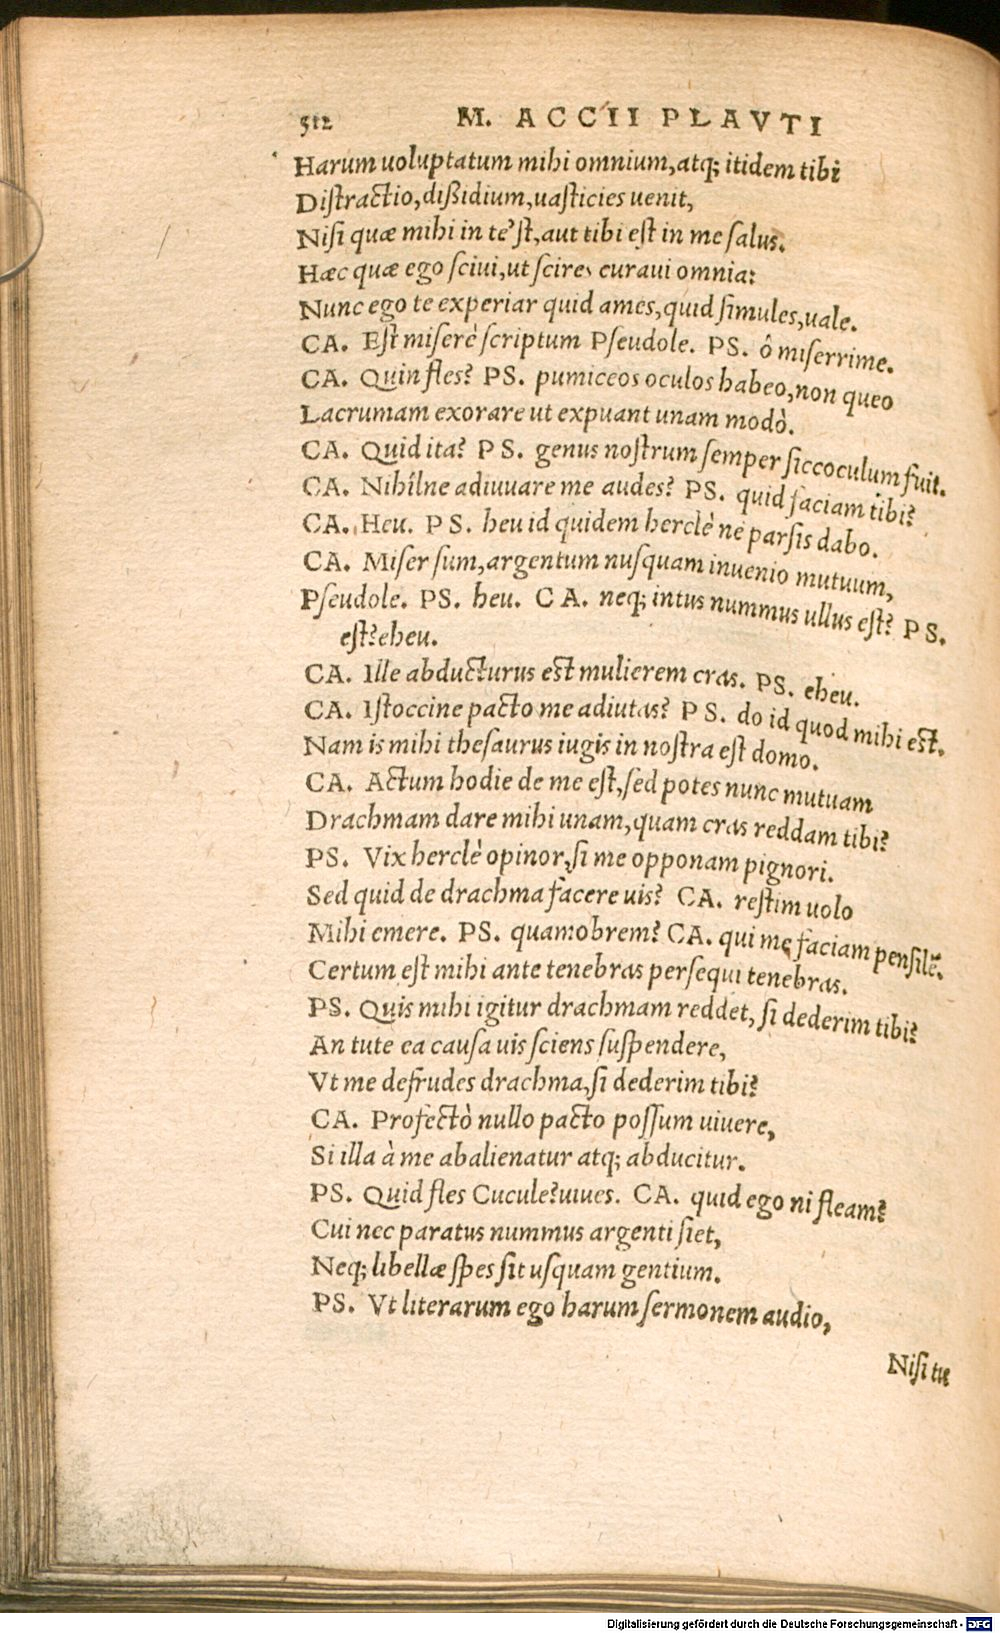 512 M. ACCII PLAVTI
Harum uoluptatum mihi omnium, atq; itidem tibi
Distractio, dißidium, uasticies uenit,
Nisi quæ mihi in te'st, aut tibi est in me salus.
Hæc quæ ego sciui, ut scires curaui omnia:
Nunc ego te experiar quid ames, quid simules, uale.
CA. Est miserè scriptum Pseudole. PS. ô miserrime.
CA. Quin fles? PS. pumiceos oculos habeo, non queo
Lacrumam exorare ut expuant unam modò.
CA. Quid ita? PS. genus nostrum semper siccoculum fuit.
CA. Nihílne adiuuare me audes? PS. quid faciam tibi?
CA. Heu. PS. heu id quidem herclè ne parsis dabo.
CA. Miser sum, argentum nusquam inuenio mutuum,
Pseudole. PS. heu. CA. neq; intus nummus ullus est? PS.
est? eheu.
CA. Ille abducturus est mulierem cras. PS. eheu.
CA. Istoccine pacto me adiutas? PS. do id quod mihi est.
Nam is mihi thesaurus iugis in nostra est domo.
CA. Actum hodie de me est, sed potes nunc mutuam
Drachmam dare mihi unam, quam cras reddam tibi?
PS. Vix herclè opinor, si me opponam pignori.
Sed quid de drachma facere uis? CA. restim uolo
Mihi emere. PS. quamobrem? CA. qui me faciam pensilẽ.
Certum est mihi ante tenebras persequi tenebras.
PS. Quis mihi igitur drachmam reddet, si dederim tibi?
An tute ea causa uis sciens suspendere,
Vt me defrudes drachma, si dederim tibi?
CA. Profectò nullo pacto possum uiuere,
Si illa à me abalienatur atq; abducitur.
PS. Quid fles Cucule? uiues. CA. quid ego ni fleam?
Cui nec paratus nummus argenti siet,
Neq; libellæ spes sit usquam gentium.
PS. Vt literarum ego harum sermonem audio,
Nisi tu
Digitalisierung gefördert durch die Deutsche Forschungsgemeinschaft - DFG